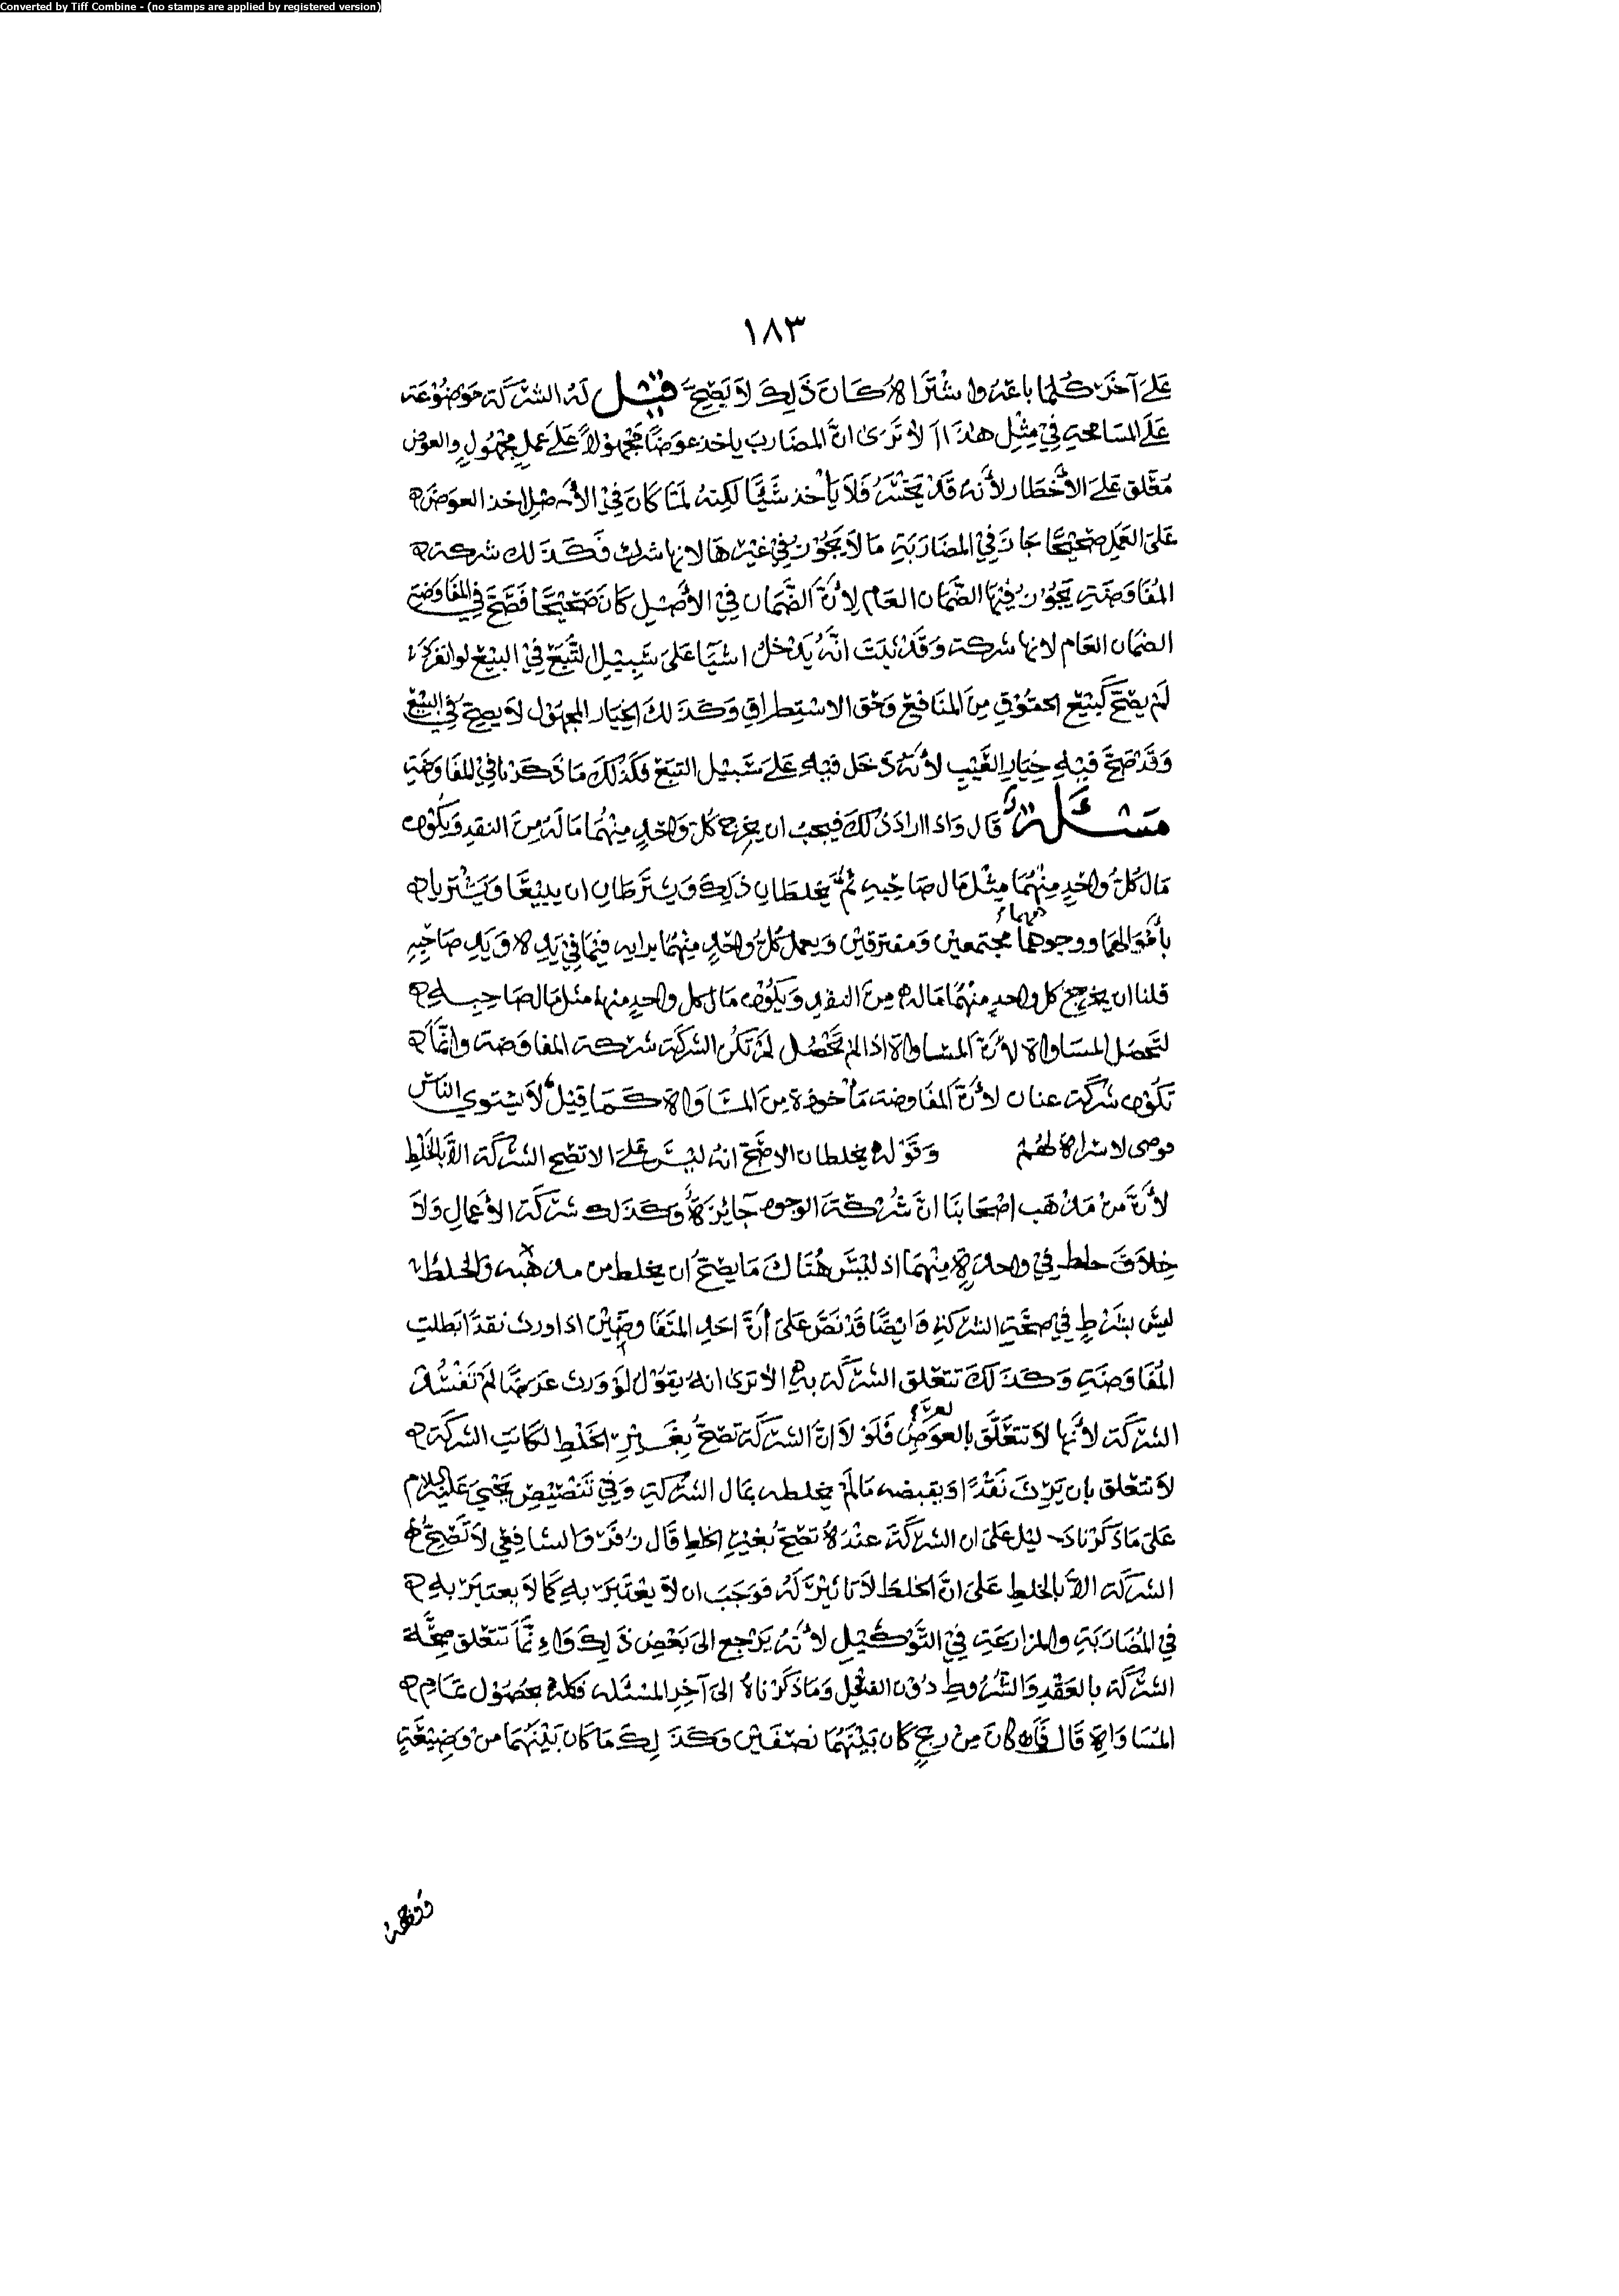 Converted by Tiff Combine - (no stamps are applied by registered version)
١٨٣
على آخر كلما باعه واشتراه كان ذلك لا يصح قيل له الشركة موضوعة
على المسامحة في مثل هذا ألا ترى ان المضارب ياخذ عوضا مجهولا على عمل مجهول والعوض
معلق على الأخطار لأنه قد يخسر فلا يأخذ شيئا لكنه لما كان في الأصل اخذ العوض
على العمل صحيحا جاز في المضاربة ما لا يجوز في غيرها لانها شرك فكذلك شركة
المفاوضة يجوز فيها الضمان العام لأن الضمان في الأصل كان صحيحا فصح في المفاوضة
الضمان العام لانها شركة وقد ثبت انه يدخل اشيآ على سبيل التبع في البيع لو انفردت
لم يصح كبيع الحقوق من المنافع وحق الاستطراق وكذلك الخيار المجهول لا يصح في البيع
وقد صح فيه خيار الغيب لأنه دخل فيه على سبيل التبع فكذلك ما ذكرنا في المفاوضة
مسئلة قال واذا اراد ذلك فيجب ان يخرج كل واحد منهما ماله من النقد ويكون
مال كل واحد منهما مثل مال صاحبه ثم يخلطان ذلك ويشترطان ان يبيعا ويشتريا
بأموالهما ووجوههما مجتمعين ومفترقين ويعمل كل واحد منهما برايه فيما في يده ويد صاحبه
قلنا ان يخرج كل واحد منهما ماله من النقد ويكون مال كل واحد منهما مثل مال صاحبه
لتحصل المساواة لأن المساواة اذا لم تحصل لم تكن الشركة شركة المفاوضة وانما
تكون شركة عنان لأن المفاوضة مأخوذة من المساواة كما قيل لا يستوي الناس
فوضى لا سراة لهم وقوله يخلطان الاصح انه ليس على الا تصح الشركة الا بالخلط
لأن من مذهب اصحابنا ان شركة الوجوه جآئزة وكذلك شركة الأعمال ولا
خلاف خلط في واحدة منهما اذ ليس هناك ما يصح ان يخلط من مذهبه والخلط
ليس بشرط في صحة الشركة وايضا قد نص على أن احد المتفاوضين اذا ورث نقدا بطلت
المفاوضة وكذلك تتعلق الشركة به الا ترى انه يقول لو ورث عرضا لم تفسد
الشركة لأنها لا تتعلق بالعوض فلولا ان الشركة تصح بغير الخلط لكانت الشركة
لا تتعلق بان يرث نقدا او يقبضه ما لم يخلطه بمال الشركة وفي تنصيص يحيى عليه السلام
على ما ذكرنا دليل على ان الشركة عنده تصح بغير الخلط قال زفر والشافعي لا تصح
الشركة الا بالخلط على ان الخلط لا تاثير له فوجب ان لا يعتبر به كما لا يعتبر به
في المضاربة والمزارعة في التوكيل لأنه يرجع الى بعض ذلك وانما تتعلق صحة
الشركة بالعقد والشروط دون الفعل وما ذكرناه الى آخر المسئله فكله بحصول تمام
المساواة قال فان كان من ربح كان بينهما نصفين وكذلك ما كان بينهما من وضيعة